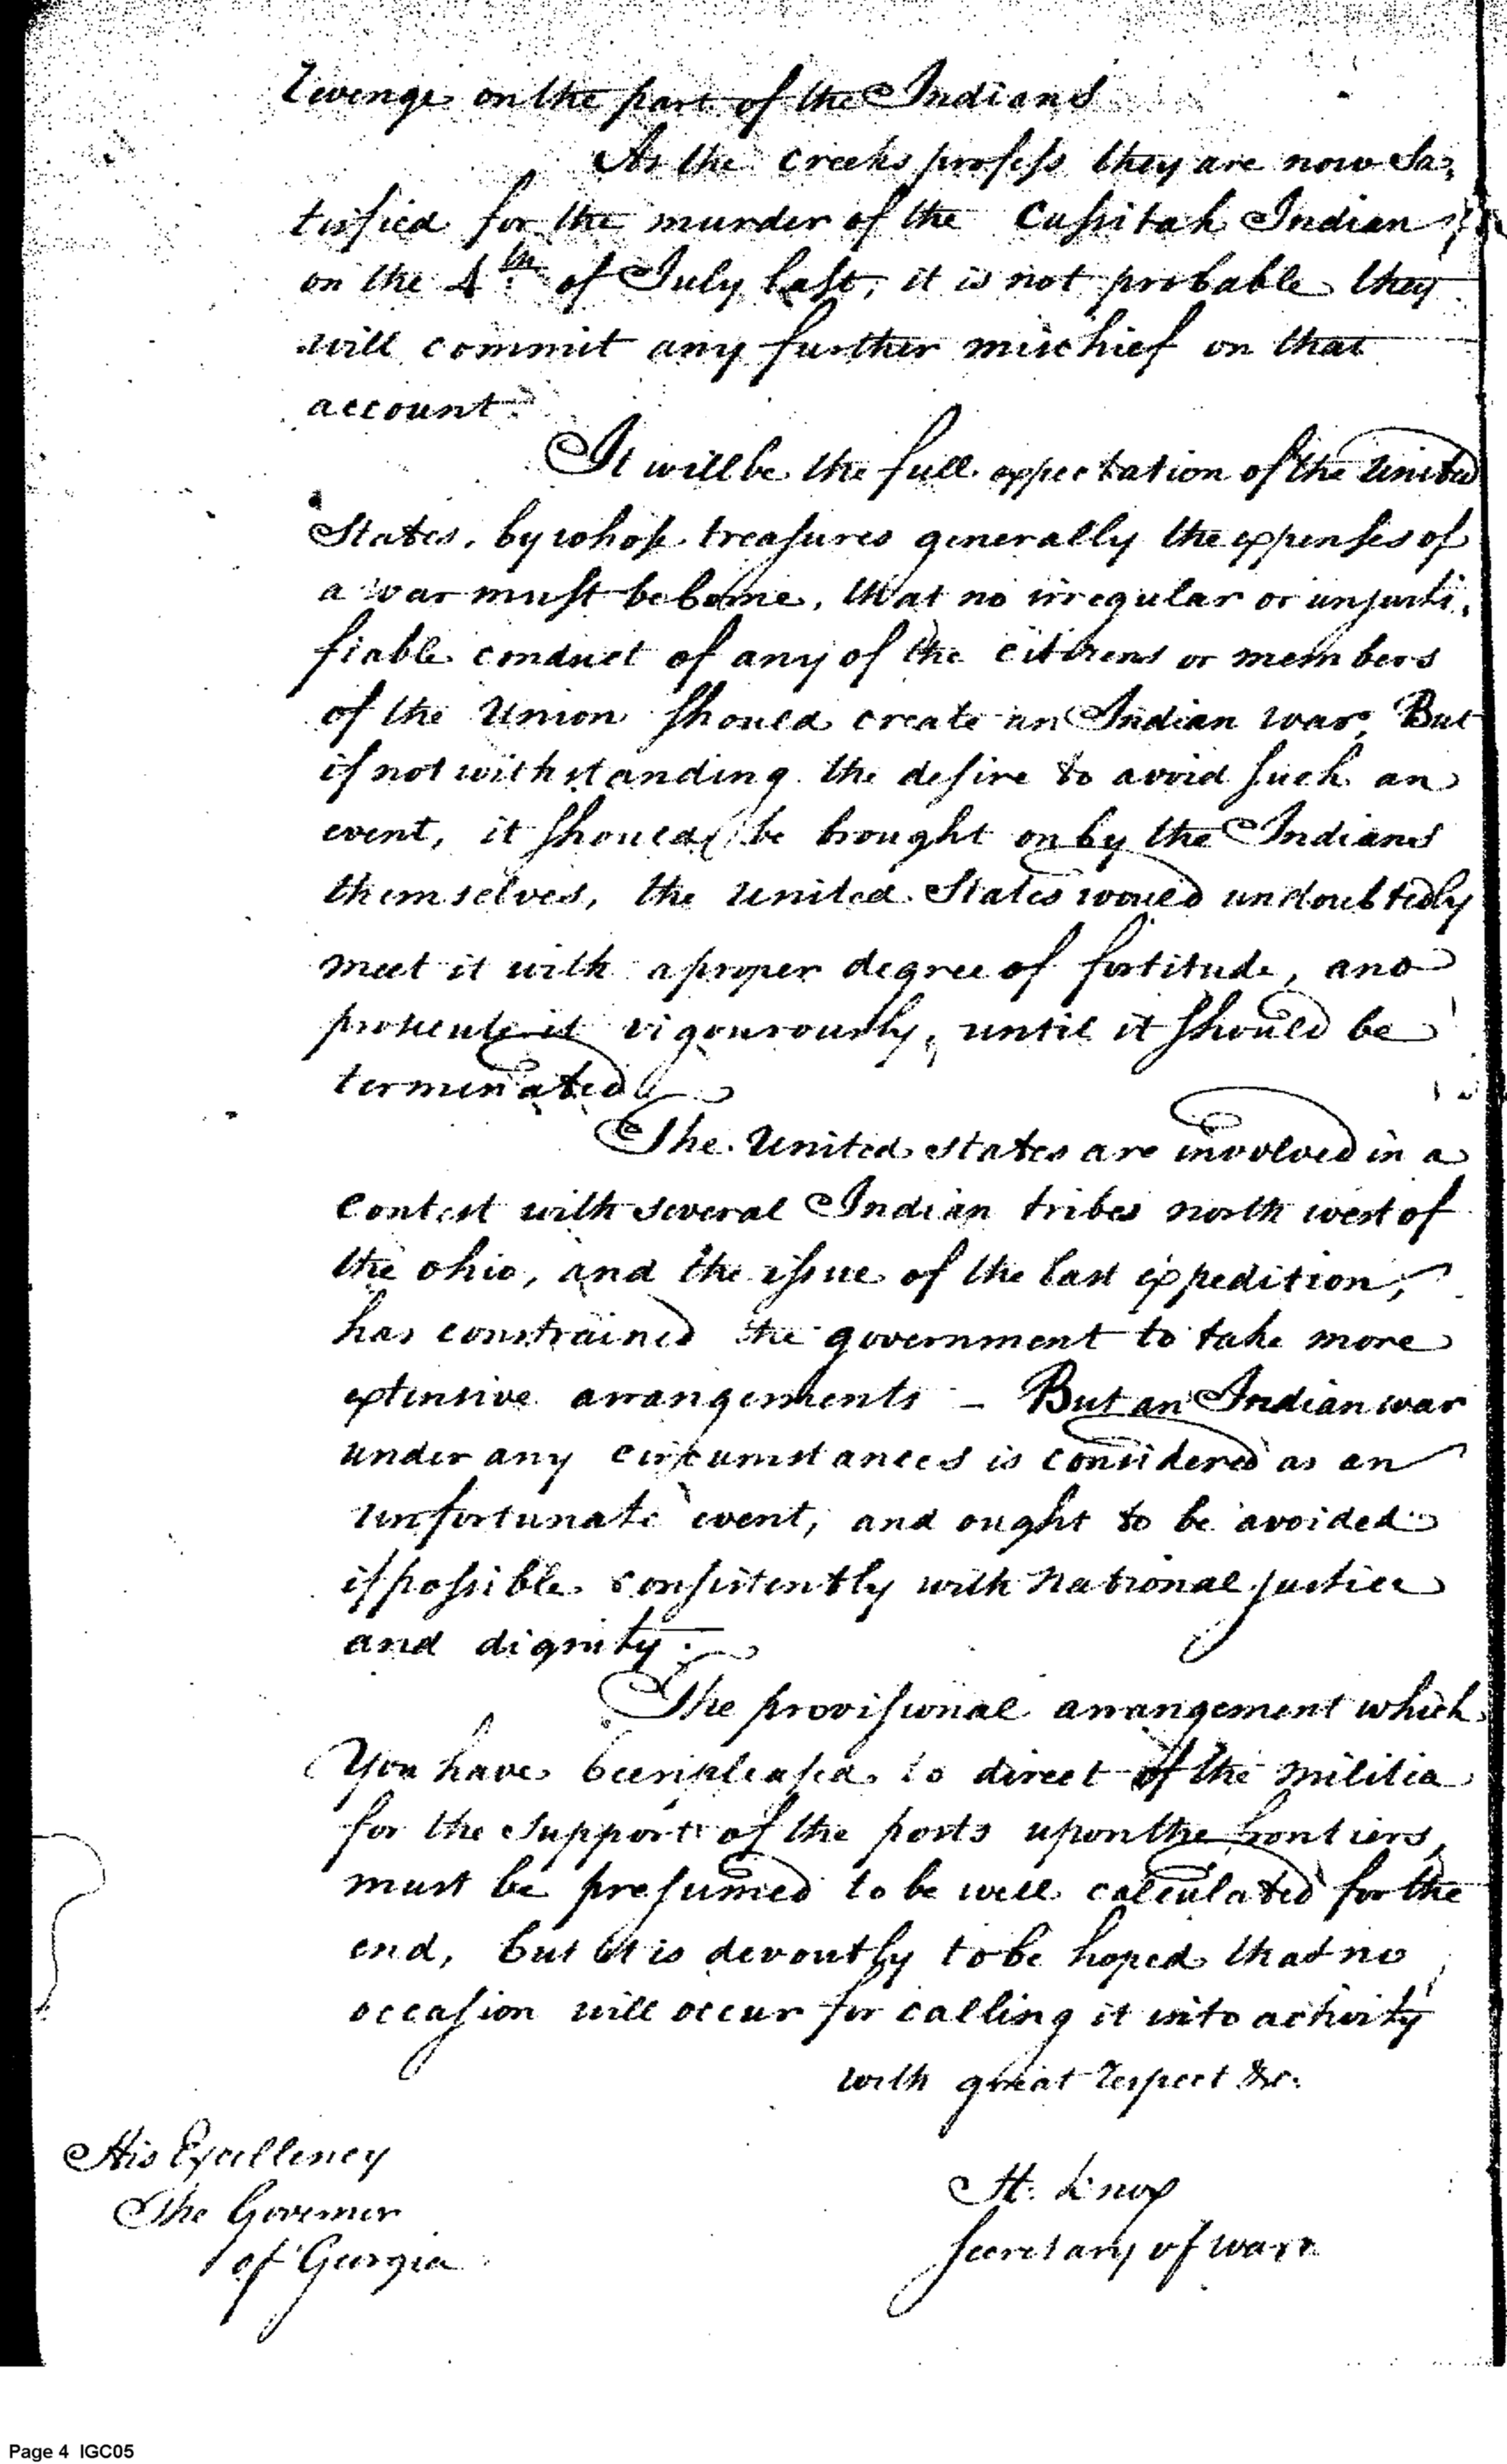 revenge on the part of the Indians
As the Creeks profess they are now Sa-
tisfied for the murder of the Cussitah Indian
on the 4th of July last, it is not probable they
will commit any further mischief on that
account.
It will be the full expectation of the United
States, by whose treasures generally the expenses of
a war must be borne, that no irregular or unjusti-
fiable conduct of any of the citizens or members
of the Union should create an Indian war. But
if notwithstanding the desire to avoid such an
event, it should be brought on by the Indians
themselves, the United States would undoubtedly
meet it with a proper degree of fortitude, and
prosecute it vigourously, until it should be
terminated
The United States are involved in a
Contest with several Indian tribes north west of
the ohio, and the issue of the last expedition,
has constrained the government to take more
extensive arrangements — But an Indian war
under any circumstances is considered as an
unfortunate event, and ought to be avoided
if possible consistently with National justice
and dignity.
The provisional arrangement which
You have been pleased to direct of the militia
for the support of the posts upon the frontiers,
must be presumed to be well calculated for the
end, but it is devoutly to be hoped that no
occasion will occur for calling it into activity
with great respect &c.
His Excellency
The Governor
of Georgia
H. Knox
Secretary of war
Page 4 IGC05